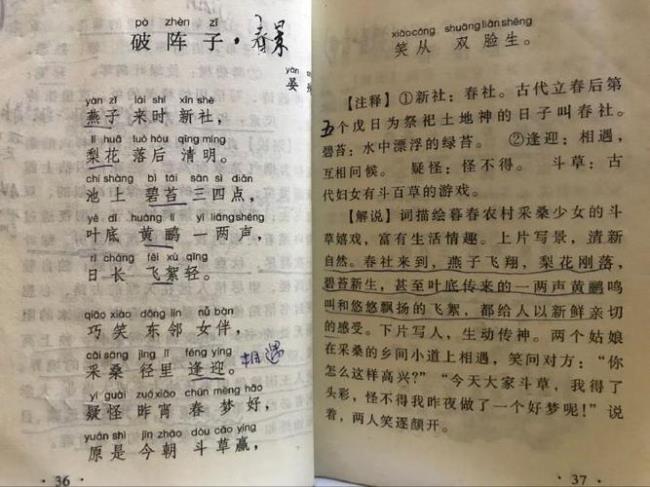 pò zhèn zǐ
破 阵 子 · 春景
yàn
晏
yàn zǐ lái shí xīn shè
燕子 来时 新社，
lí huā luò hòu qīng míng
梨花 落后 清明。
chí shàng bì tái sān sì diǎn
池上 碧苔 三四点，
yè dǐ huáng lí yì liǎng shēng
叶底 黄鹂 一两声，
rì cháng fēi xù qīng
日长 飞絮轻。
qiǎo xiào dōng lín nǚ bàn
巧笑 东邻 女伴，
cǎi sāng jìng lǐ féng yíng
采桑 径里 逢迎。 相遇
yí guài zuó xiāo chūn mèng hǎo
疑怪 昨宵 春梦好，
yuán shì jīn zhāo dòu cǎo yíng
原是 今朝 斗草赢，
36
xiào cóng shuāng liǎn shēng
笑从 双脸生。
【注释】①新社：春社。古代立春后第
五个戊日为祭祀土地神的日子叫春社。
碧苔：水中漂浮的绿苔。 ②逢迎：相遇，
互相问候。 疑怪：怪不得。 斗草：古
代妇女有斗百草的游戏。
【解说】词描绘暮春农村采桑少女的斗
草嬉戏，富有生活情趣。上片写景，清新
自然。春社来到，燕子飞翔，梨花刚落，
碧苔新生，甚至叶底传来的一两声黄鹂鸣
叫和悠悠飘扬的飞絮，都给人以新鲜亲切
的感受。下片写人，生动传神。两个姑娘
在采桑的乡间小道上相遇，笑问对方：“你
怎么这样高兴？”“今天大家斗草，我得了
头彩，怪不得我昨夜做了一个好梦呢！”说
着，两人笑逐颜开。
37